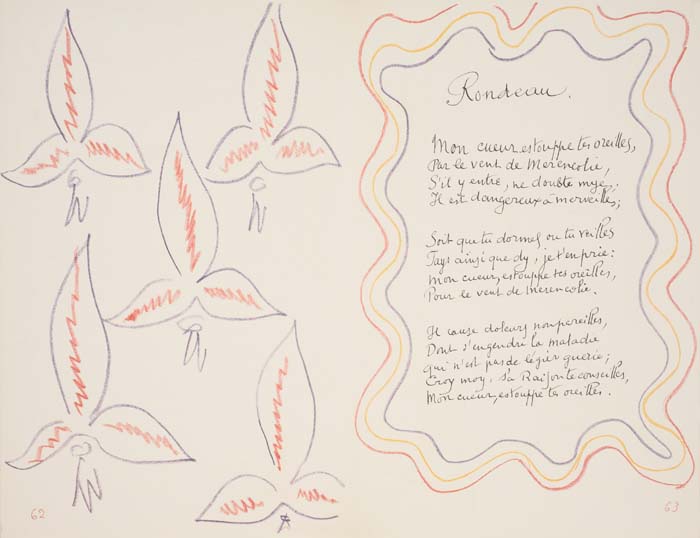 Rondeau.
Mon cueur, estouppe tes oreilles,
Par le vent de Merencolie,
S'il y entre, ne doubte mye,
Il est dangereux à merveilles;
Soit que tu dormes ou tu veilles
Fays ainsi que dy, je t'en prie:
Mon cueur, estouppe tes oreilles,
Pour le vent de Merencolie.
Il cause doleurs nonpareilles,
Dont s'engendre la maladie
Qui n'est pas de légier guerie;
Croy moy, s'a Raison te conseilles,
Mon cueur, estouppe tes oreilles.
62
63